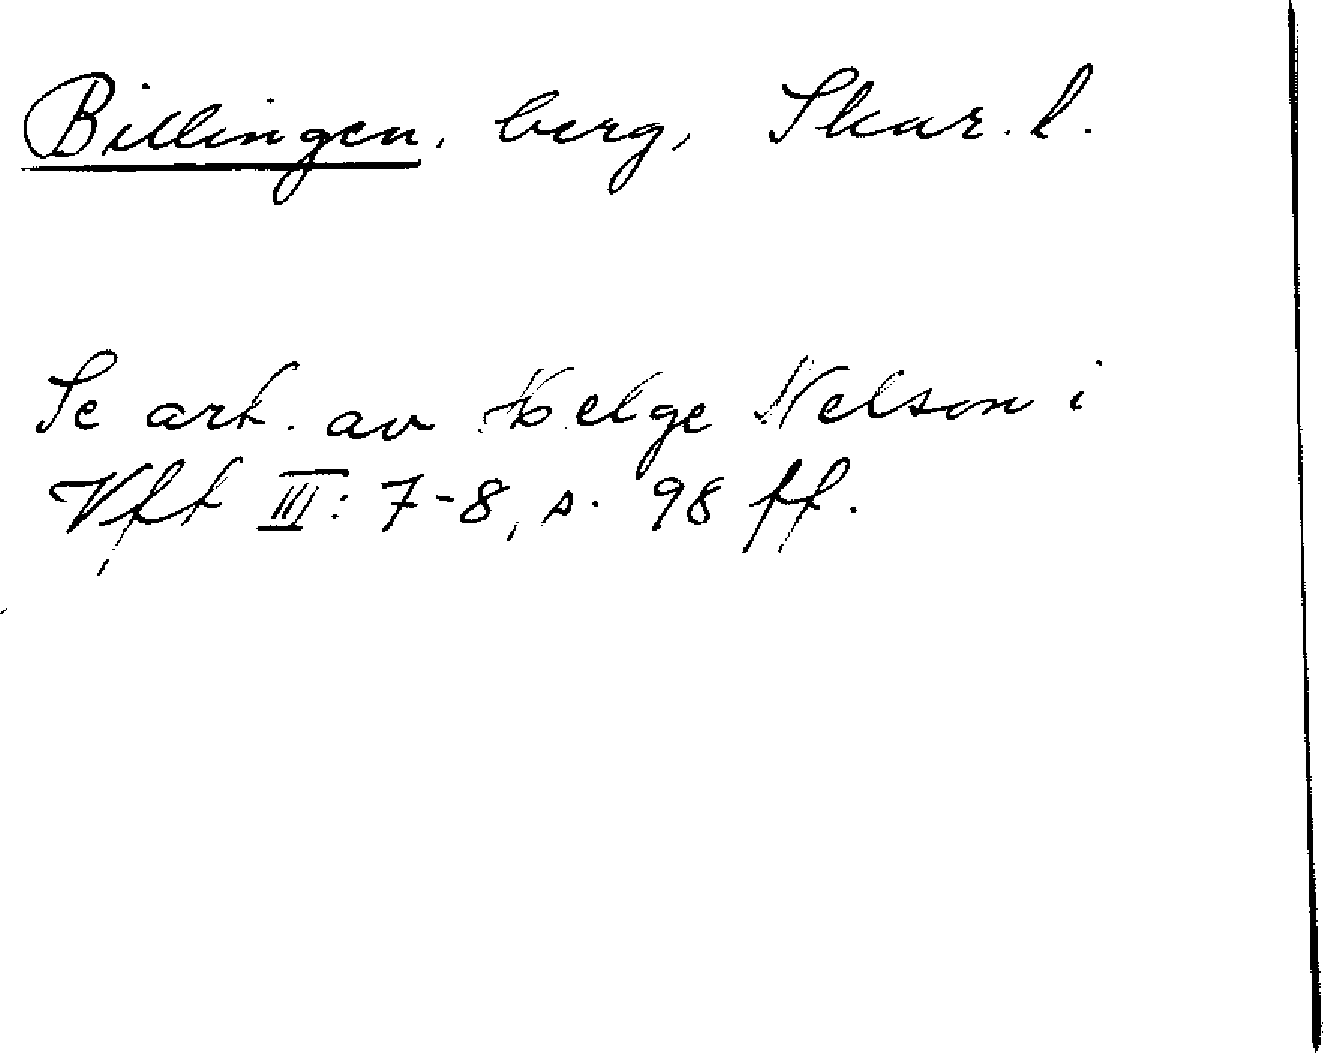 Billingen, berg, Skar. l.
Se art. av Helge Nelson i
Vft III: 7-8, s. 98 ff.